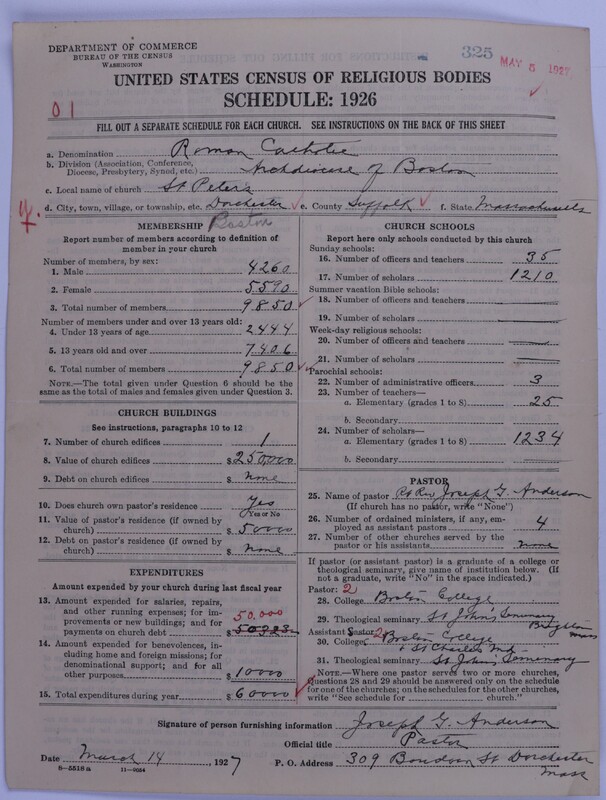 DEPARTMENT OF COMMERCE
BUREAU OF THE CENSUS
WASHINGTON
325
MAY 5 1927
UNITED STATES CENSUS OF RELIGIOUS BODIES
SCHEDULE: 1926
01
FILL OUT A SEPARATE SCHEDULE FOR EACH CHURCH. SEE INSTRUCTIONS ON THE BACK OF THIS SHEET
a. Denomination Roman Catholic
b. Division (Association, Conference, Diocese, Presbytery, Synod, etc.) Archdiocese of Boston
c. Local name of church St Peter's
d. City, town, village, or township, etc. Dorchester e. County Suffolk f. State Massachusetts
Boston
MEMBERSHIP
Report number of members according to definition of member in your church
Number of members, by sex:
1. Male 4260
2. Female 5590
3. Total number of members 9850
Number of members under and over 13 years old:
4. Under 13 years of age 2444
5. 13 years old and over 7406
6. Total number of members 9850
NOTE.—The total given under Question 6 should be the same as the total of males and females given under Question 3.
CHURCH BUILDINGS
See instructions, paragraphs 10 to 12
7. Number of church edifices 1
8. Value of church edifices $250,000
9. Debt on church edifices $ None
10. Does church own pastor's residence Yes
Yes or No
11. Value of pastor's residence (if owned by church) $ 50000
12. Debt on pastor's residence (if owned by church) $ None
EXPENDITURES
Amount expended by your church during last fiscal year
13. Amount expended for salaries, repairs, and other running expenses; for improvements or new buildings; and for payments on church debt 50,000
14. Amount expended for benevolences, including home and foreign missions; for denominational support; and for all other purposes $ 10000
15. Total expenditures during year $ 60000
CHURCH SCHOOLS
Report here only schools conducted by this church
Sunday schools:
16. Number of officers and teachers 35
17. Number of scholars 1210
Summer vacation Bible schools:
18. Number of officers and teachers
19. Number of scholars
Week-day religious schools:
20. Number of officers and teachers
21. Number of scholars
Parochial schools:
22. Number of administrative officers 3
23. Number of teachers—
a. Elementary (grades 1 to 8) 25
b. Secondary
24. Number of scholars—
a. Elementary (grades 1 to 8) 1234
b. Secondary
PASTOR
25. Name of pastor Rt Rev Joseph G. Anderson
(If church has no pastor, write "None")
26. Number of ordained ministers, if any, employed as assistant pastors 4
27. Number of other churches served by the pastor or his assistants None
If pastor (or assistant pastor) is a graduate of a college or theological seminary, give name of institution below. (If not a graduate, write "No" in the space indicated.)
Pastor: 2
28. College Boston College
29. Theological seminary St Johns Seminary Brighton Mass
Assistant pastor: 2
30. College Boston College
& St Charles Md
31. Theological seminary St Johns Seminary
NOTE.—Where one pastor serves two or more churches, Questions 28 and 29 should be answered only on the schedule for one of the churches; on the schedules for the other churches, write "See schedule for church."
Signature of person furnishing information Joseph G. Anderson
Official title Pastor
Date March 14, 1927 P. O. Address 309 Bowdoin St Dorchester Mass
8—5518a 11—9094